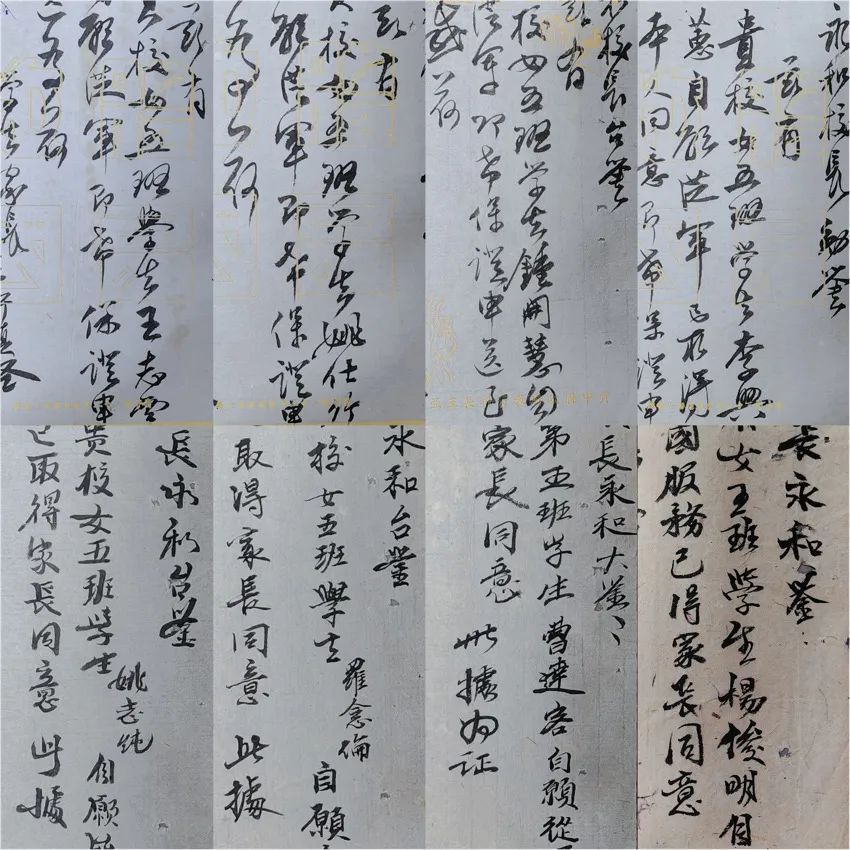 茲有
校女五班學生王志雲
願從軍即希保證申
學生家長
茲有
校女五班学生姚仕竹
願從軍即希保證申
校長台鑒
茲有
校女五班学生鍾開慧自
從軍即希保證申送
感荷
永和校長勛鑒
茲有
貴校女五班学生李興
蕙自願從軍已取得
本人同意即希保證申
長永和台鑒
貴校女五班學生姚志純自願
已取得家長同意此據
永和台鑒
校女五班學生羅念倫自願
取得家長同意此據
長永和大鑒
第五班学生曹建容自願從
家長同意此據为证
長永和鑒
女五班學生楊俊明自
國服務已得家長同意